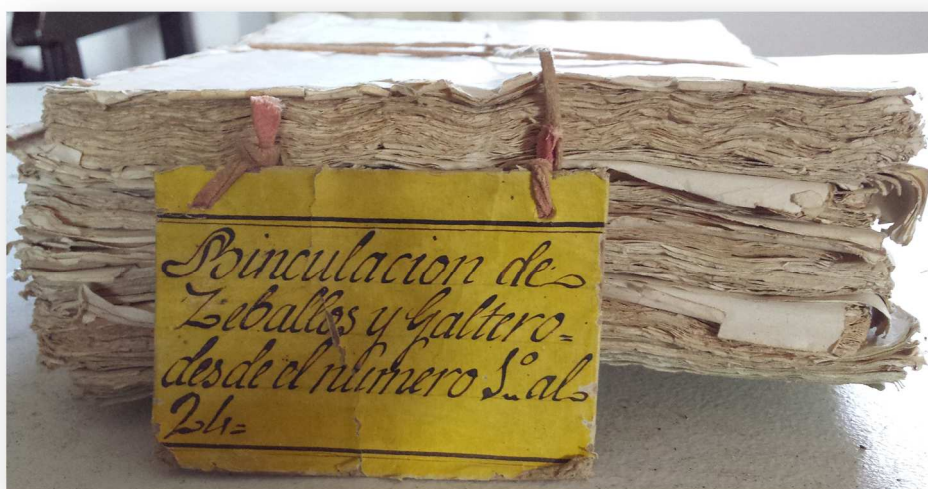 Binculacion de
Zeballos y Galtero=
desde el numero 1º al
24=